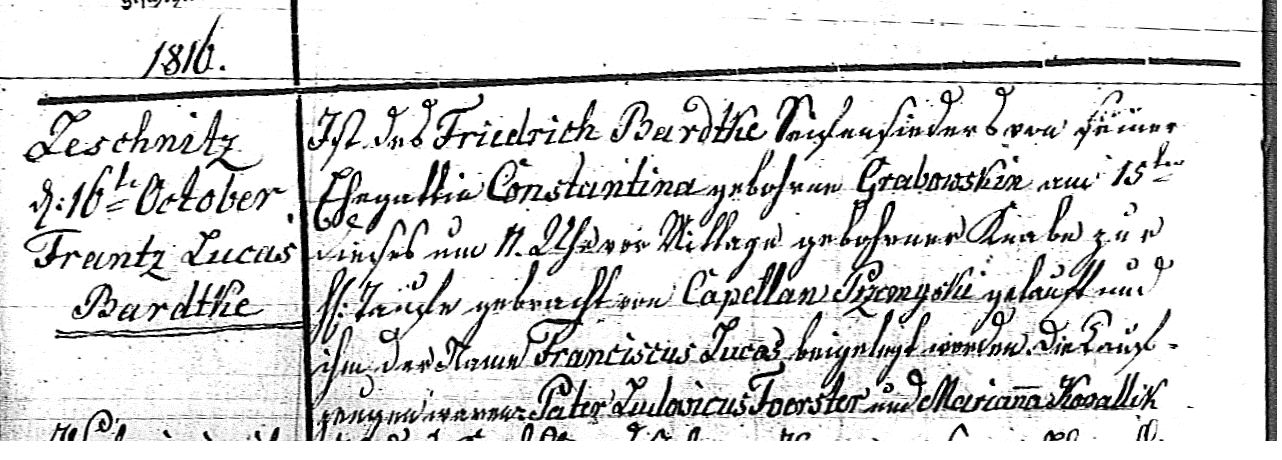 1816.
Leschnitz
d: 16te October
Frantz Lucas
Bardtke
Ist des Friedrich Bardtke Seifensieders von seiner
Ehegattin Constantina gebohrne Grabowskin am 15ten
dieses um 11. Uhr vor Mittage gebohrner Knabe zur
hl: Taufe gebracht von Capellan Przemyski getauft und
ihm der Name Franciscus Lucas beigelegt worden. Die Tauf-
zeugen waren: Pater Ludovicus Foerster und Marianna Kovallik